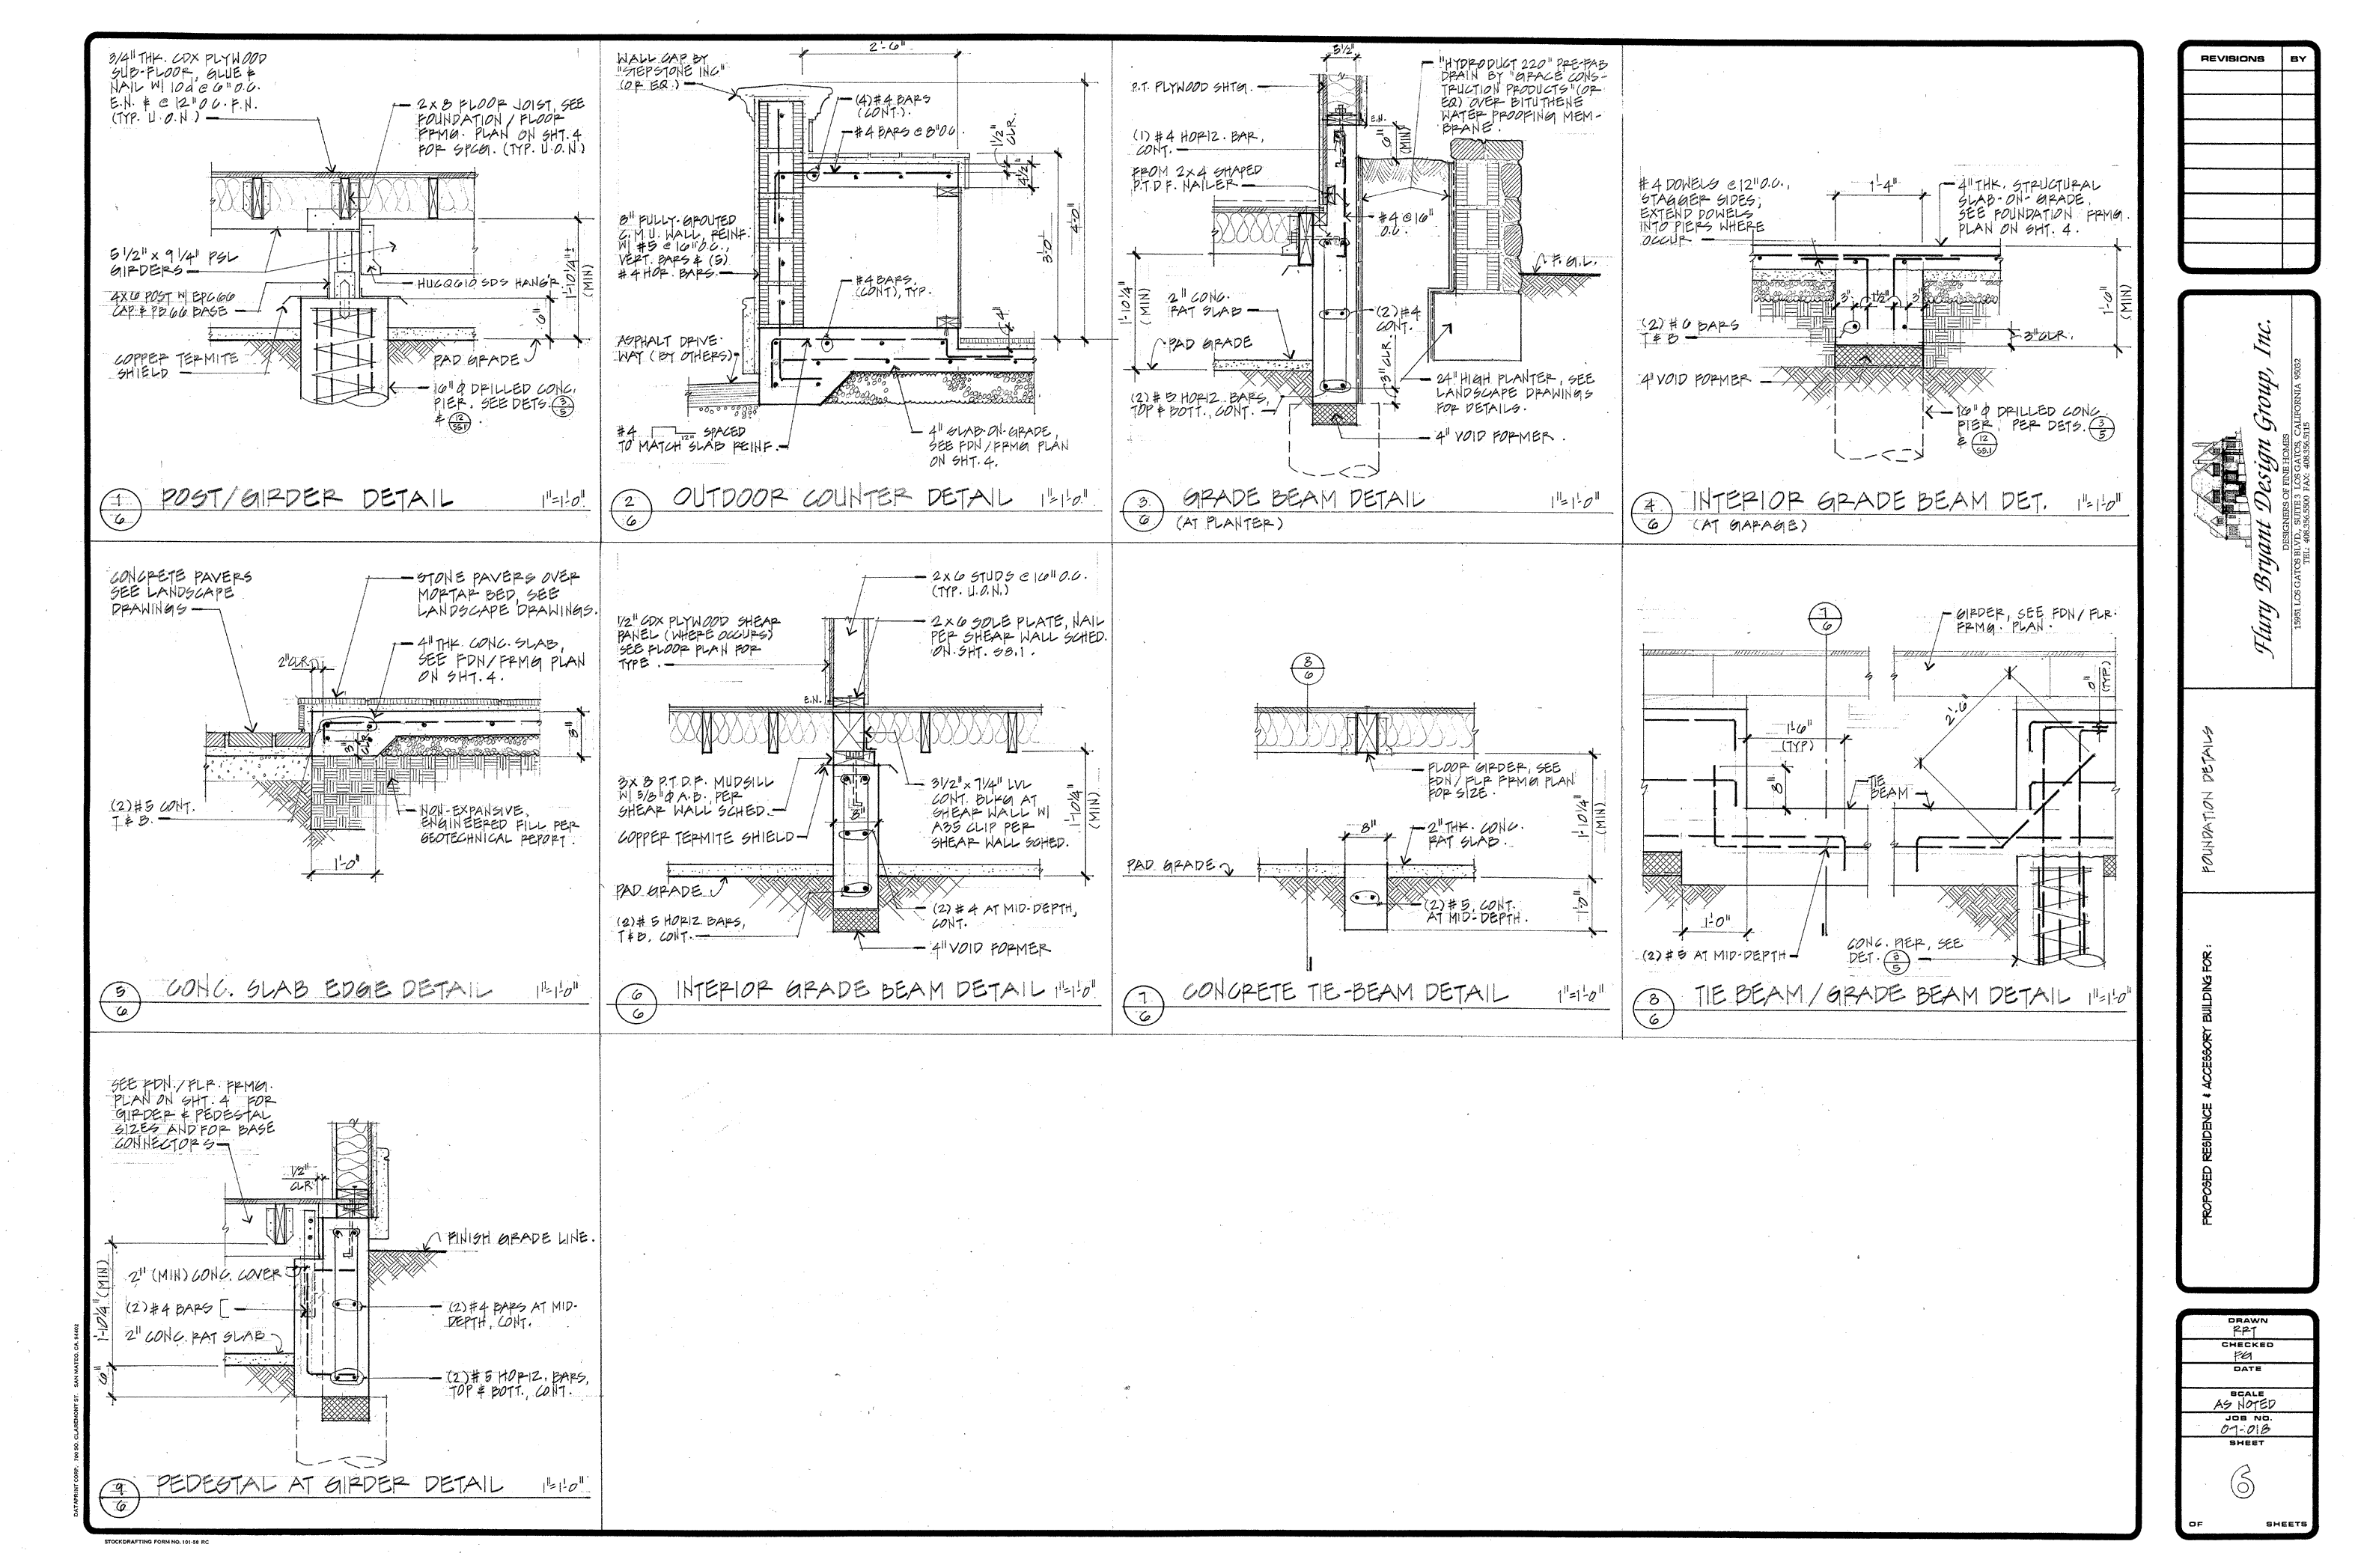 3/4" THK. CDX PLYWOOD
SUB-FLOOR, GLUE &
NAIL W/ 10d @ 6" O.C.
E.N. & @ 12" O.C. F.N.
(TYP. U.O.N.)
2x8 FLOOR JOIST, SEE
FOUNDATION / FLOOR
FRMG. PLAN ON SHT. 4
FOR SPCG. (TYP. U.O.N)
5 1/2" x 9 1/4" PSL
GIRDERS
HUCQ610 SDS HANGR.
4x6 POST W/ EPC66
CAP & PB66 BASE
1'-10 1/4"
(MIN)
6"
COPPER TERMITE
SHIELD
PAD GRADE
16" φ DRILLED CONC.
PIER, SEE DETS. 3/5
& 12/SB.1
1/6 POST/GIRDER DETAIL 1"=1'-0"
WALL CAP BY
"STEPSTONE INC"
(OR EQ.)
2'-6"
(4) #4 BARS
(CONT.)
#4 BARS @ 8" O.C.
1 1/2"
CLR.
4 1/2"
3'-0"
4'-0"
8" FULLY-GROUTED
C.M.U. WALL, REINF.
W/ #5 @ 16" O.C.,
VERT. BARS & (5)
#4 HOR. BARS.
#4 BARS,
(CONT), TYP.
4"
ASPHALT DRIVE-
WAY (BY OTHERS)
#4 12" SPACED
TO MATCH SLAB REINF.
4" SLAB-ON-GRADE,
SEE FDN/FRMG PLAN
ON SHT. 4.
2/6 OUTDOOR COUNTER DETAIL 1"=1'-0"
5 1/2"
P.T. PLYWOOD SHTG.
"HYDRODUCT 220" PRE-FAB
DRAIN BY "GRACE CONS-
TRUCTION PRODUCTS" (OR
EQ) OVER BITUTHENE
WATER PROOFING MEM-
BRANE.
E.N.
6"
(MIN)
(1) #4 HORIZ. BAR,
CONT.
FROM 2x4 SHAPED
P.T.D.F. NAILER
#4 @ 16"
O.C.
F.G.L.
1'-10 1/4"
(MIN)
2" CONC.
RAT SLAB
PAD GRADE
(2) #4
CONT.
3" CLR.
(2) #5 HORIZ. BARS,
TOP & BOTT., CONT.
24" HIGH PLANTER, SEE
LANDSCAPE DRAWINGS
FOR DETAILS.
4" VOID FORMER.
3/6 GRADE BEAM DETAIL 1"=1'-0"
(AT PLANTER)
#4 DOWELS @ 12" O.C.,
STAGGER SIDES;
EXTEND DOWELS
INTO PIERS WHERE
OCCUR
1'-4"
4" THK. STRUCTURAL
SLAB-ON-GRADE,
SEE FOUNDATION FRMG.
PLAN ON SHT. 4.
3" 1 1/2" 3"
1'-6"
(MIN)
(2) #6 BARS
T & B
3" CLR.
4" VOID FORMER
16" φ DRILLED CONC.
PIER, PER DETS. 3/5
& 12/SB.1
4/6 INTERIOR GRADE BEAM DET. 1"=1'-0"
(AT GARAGE)
CONCRETE PAVERS
SEE LANDSCAPE
DRAWINGS
STONE PAVERS OVER
MORTAR BED, SEE
LANDSCAPE DRAWINGS.
4" THK. CONC. SLAB,
SEE FDN/FRMG PLAN
ON SHT. 4.
2" CLR.
3"
CLR.
8"
(2) #5 CONT.
T & B.
NON-EXPANSIVE,
ENGINEERED FILL PER
GEOTECHNICAL REPORT.
1'-0"
5/6 CONC. SLAB EDGE DETAIL 1"=1'-0"
2x6 STUDS @ 16" O.C.
(TYP. U.O.N.)
1/2" CDX PLYWOOD SHEAR
PANEL (WHERE OCCURS)
SEE FLOOR PLAN FOR
TYPE.
2x6 SOLE PLATE, NAIL
PER SHEAR WALL SCHED.
ON SHT. SB.1.
E.N.
3x8 P.T.D.F. MUDSILL
W/ 5/8" φ A.B., PER
SHEAR WALL SCHED.
COPPER TERMITE SHIELD
8"
3 1/2" x 7 1/4" LVL
CONT. BLKG AT
SHEAR WALL W/
A35 CLIP PER
SHEAR WALL SCHED.
1'-10 1/4"
(MIN)
PAD GRADE
(2) #5 HORIZ BARS,
T & B, CONT.
(2) #4 AT MID-DEPTH,
CONT.
4" VOID FORMER
6/6 INTERIOR GRADE BEAM DETAIL 1"=1'-0"
8/6
FLOOR GIRDER, SEE
FDN/FLR FRMG PLAN
FOR SIZE.
1'-10 1/4"
(MIN)
8"
2" THK. CONC.
RAT SLAB.
PAD GRADE
(2) #5, CONT.
AT MID-DEPTH.
1'-0"
7/6 CONCRETE TIE-BEAM DETAIL 1"=1'-0"
7/6
GIRDER, SEE FDN/FLR.
FRMG. PLAN.
(TYP.)
2'-6"
1'-6"
(TYP)
8"
TIE
BEAM
1'-0"
(2) #5 AT MID-DEPTH
CONC. PIER, SEE
DET. 3/5
8/6 TIE BEAM/GRADE BEAM DETAIL 1"=1'-0"
SEE FDN./FLR. FRMG.
PLAN ON SHT. 4 FOR
GIRDER & PEDESTAL
SIZES AND FOR BASE
CONNECTORS
1/2"
CLR.
FINISH GRADE LINE.
2" (MIN) CONC. COVER
(2) #4 BARS
2" CONC. RAT SLAB
1'-10 1/4" (MIN)
6"
(2) #4 BARS AT MID-
DEPTH, CONT.
(2) #5 HORIZ. BARS,
TOP & BOTT., CONT.
9/6 PEDESTAL AT GIRDER DETAIL 1"=1'-0"
DATAPRINT CORP. 700 SO. CLAREMONT ST. SAN MATEO, CA. 94402
STOCKDRAFTING FORM NO. 101-56 RC
REVISIONS BY
Flury Bryant Design Group, Inc.
DESIGNERS OF FINE HOMES
15951 LOS GATOS BLVD., SUITE 3 LOS GATOS, CALIFORNIA 95032
TEL: 408.356.5500 FAX: 408.356.5115
FOUNDATION DETAILS
PROPOSED RESIDENCE & ACCESSORY BUILDING FOR:
DRAWN
RRT
CHECKED
FG
DATE
SCALE
AS NOTED
JOB NO.
07-018
SHEET
6
OF SHEETS